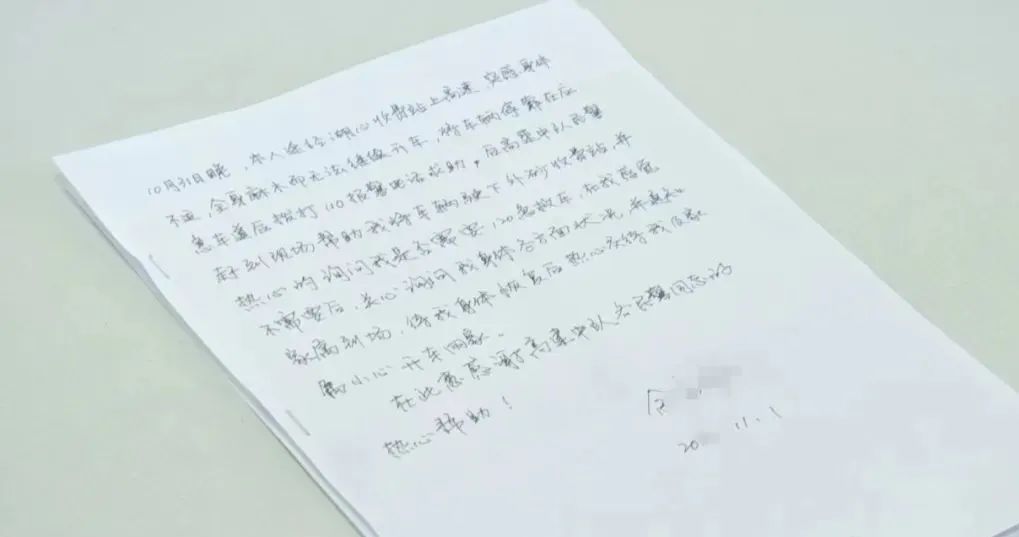 10月31日晚，本人途经潮心收费站上高速，突感身体
不适，全身麻木而无法继续开车，将车辆停靠在应
急车道后拨打110报警电话求助。后高速中队民警
赶到现场帮助我将车辆驶下外砂收费站，并
热心的询问我是否需要120急救车，在我感觉
不需要后，关心询问我身体各方面状况，并
家属到场，待我身体恢复后热心嘱我及家
属小心开车回家。
在此感谢高速中队各民警同志的
热心帮助！
20 11.1